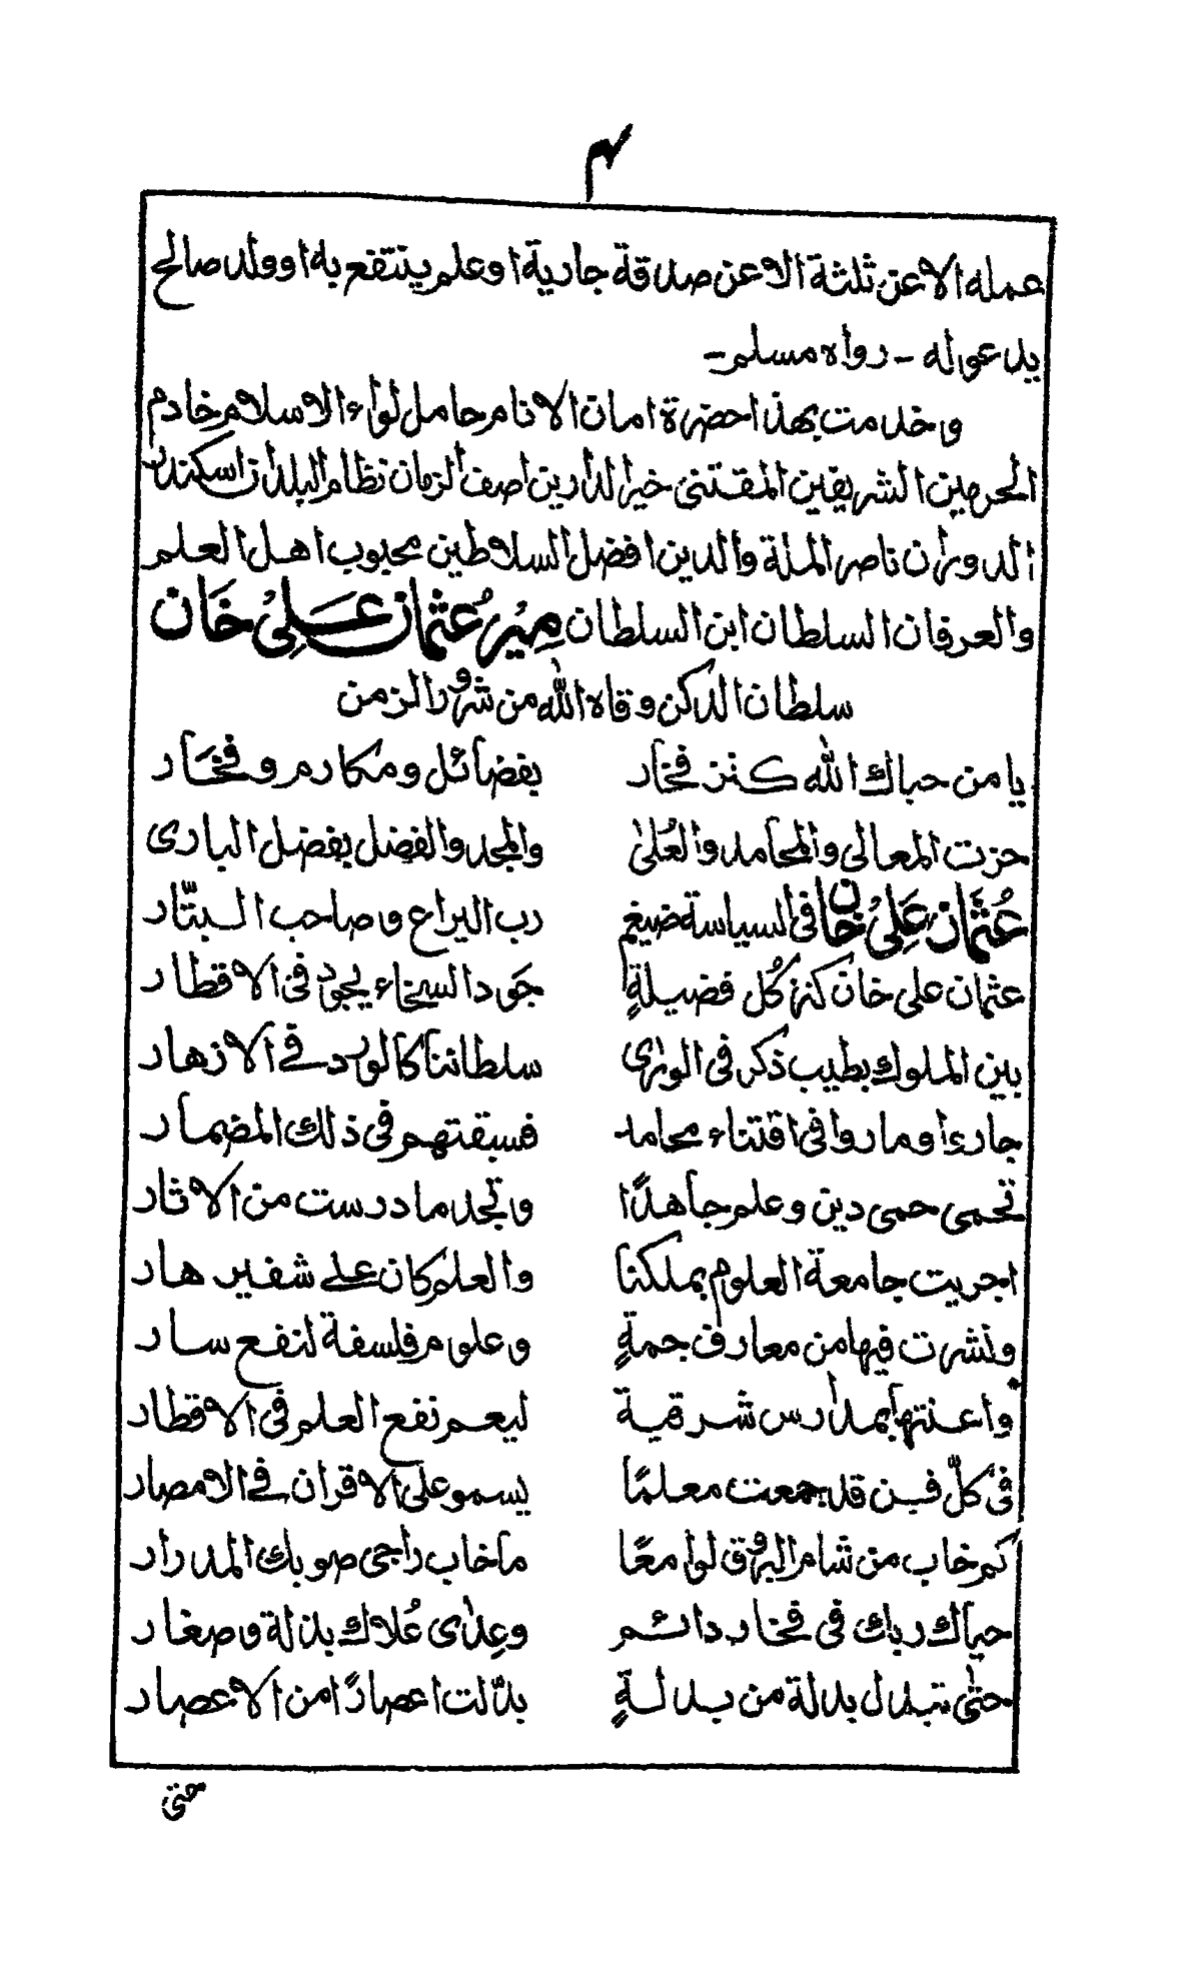 ۴
عمله الا عن ثلثة الا عن صدقة جارية او علم ينتفع به او ولد صالح
يدعو له - رواه مسلم -
وخدمت بهذا حضرة امان الانام حامل لواء الاسلام خادم
الحرمين الشريفين المقتنى خير الدارين اصف الزمان نظام البلدان اسكندر
الدوران ناصر الملة والدين افضل السلاطين محبوب اهل العلم
والعرفان السلطان ابن السلطان مِيْر عُثمان عَلِىْ خَان
سلطان الدكن وقاه الله من شرور الزمن
يا من حباك الله كنز فخار بفضائل ومكارم وفخَار
حزت المعالى والمحامد والعُلىٰ والمجد والفضل بفضل البارى
عُثمَان عَلِىْ خان فى السياسة ضيغم رب اليراع وصاحب البتّار
عثمان على خان كنز كُل فضيلةٍ جَود السخاء يجود فى الاقطار
بين الملوك بطيب ذكر فى الورىٰ سلطاننا كالورد فے الازهار
جارءا وماروا فى اقتناء محامد فسبقتهم فى ذلك المضمار
تحمى حمى دين وعلم جاهدًا وتجد ما درست من الاثار
اجريت جامعة العلوم بملكنا والعلم كان علے شفير هار
ونشرت فيها من معارف جمةٍ وعلوم فلسفة لنفع سار
واعنتها بمدارس شرقية ليعم نفع العلم فى الاقطار
فى كلّ فن قد جمعت معلمًا يسمو على الاقران فے الامصار
كم خاب من شام البروق لوامعًا ما خاب راجى صوبك المدرار
حياك ربك فى فخار دائم وعِدٰى عُلاك بذلة وصغار
حتٰى تبدل بدلة من بدلةٍ بدّلت اعصارًا من الاعصار
حتى